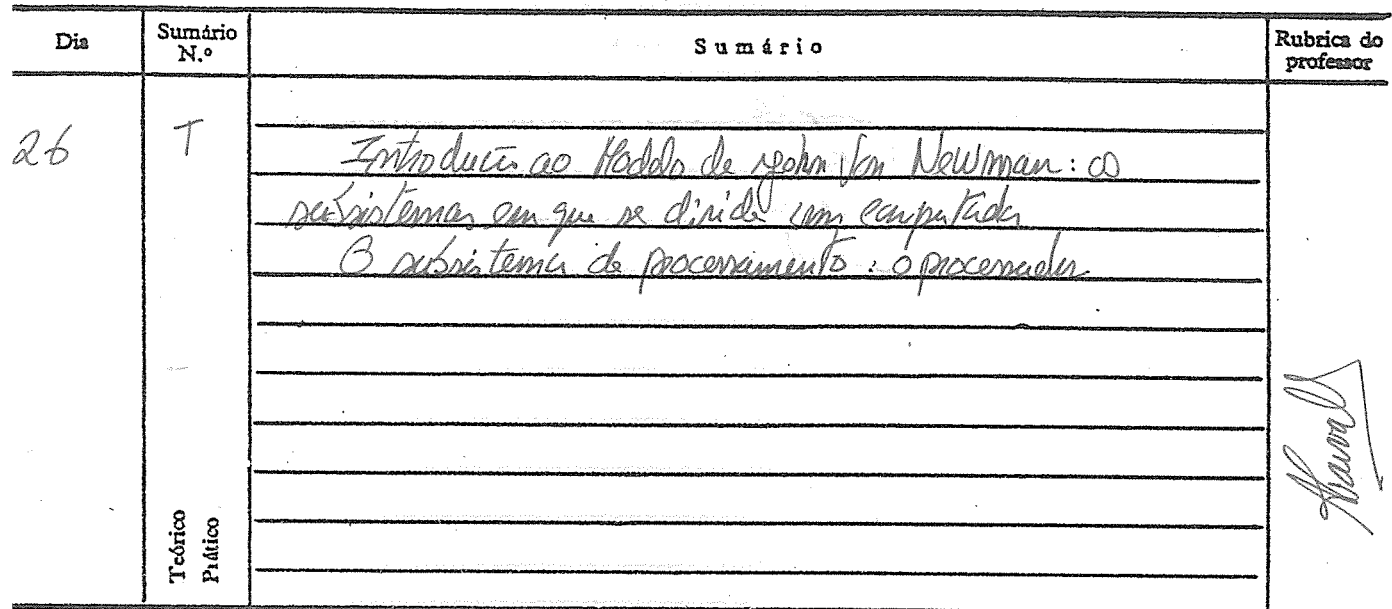 Dia
Sumário N.º
Sumário
Rubrica do professor
26
T
Introdução ao Modelo de John Von Newman: os
subsistemas em que se divide um computador
O subsistema de processamento: o processador
Teórico
Prático